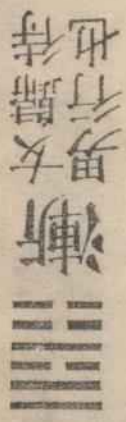 漸
女歸待
男行也